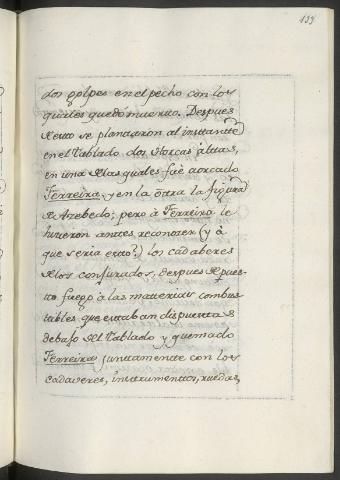 139
dos golpes en el pecho con los
quales quedó muerto. Despues
de esto se plantaron al instante
en el tablado dos Horcas altas,
en una de las quales fue aorcado
Ferreira, y en la otra la figura
de Azebedo; pero à Ferreira le
hicieron antes reconozer (y à
que seria esto?) los cadaberes
de los conjurados, despues de pues-
to fuego à las materias combus-
tables que estaban dispuestas
debajo del tablado y quemado
Ferreira juntamente con los
cadaveres, instrumentos, ruedas,